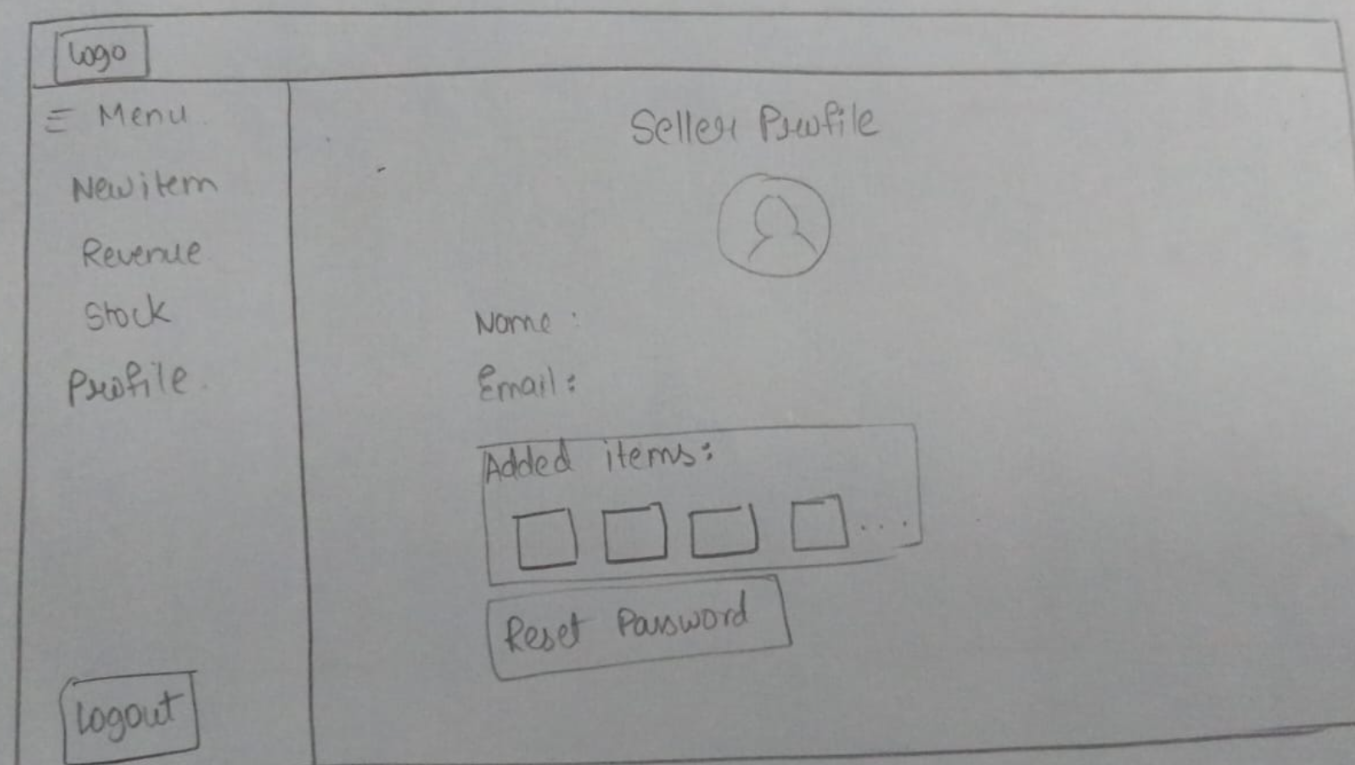 Logo
Menu
New item
Revenue
Stock
Profile
Logout
Seller Profile
Name :
Email :
Added items :
...
Reset Password